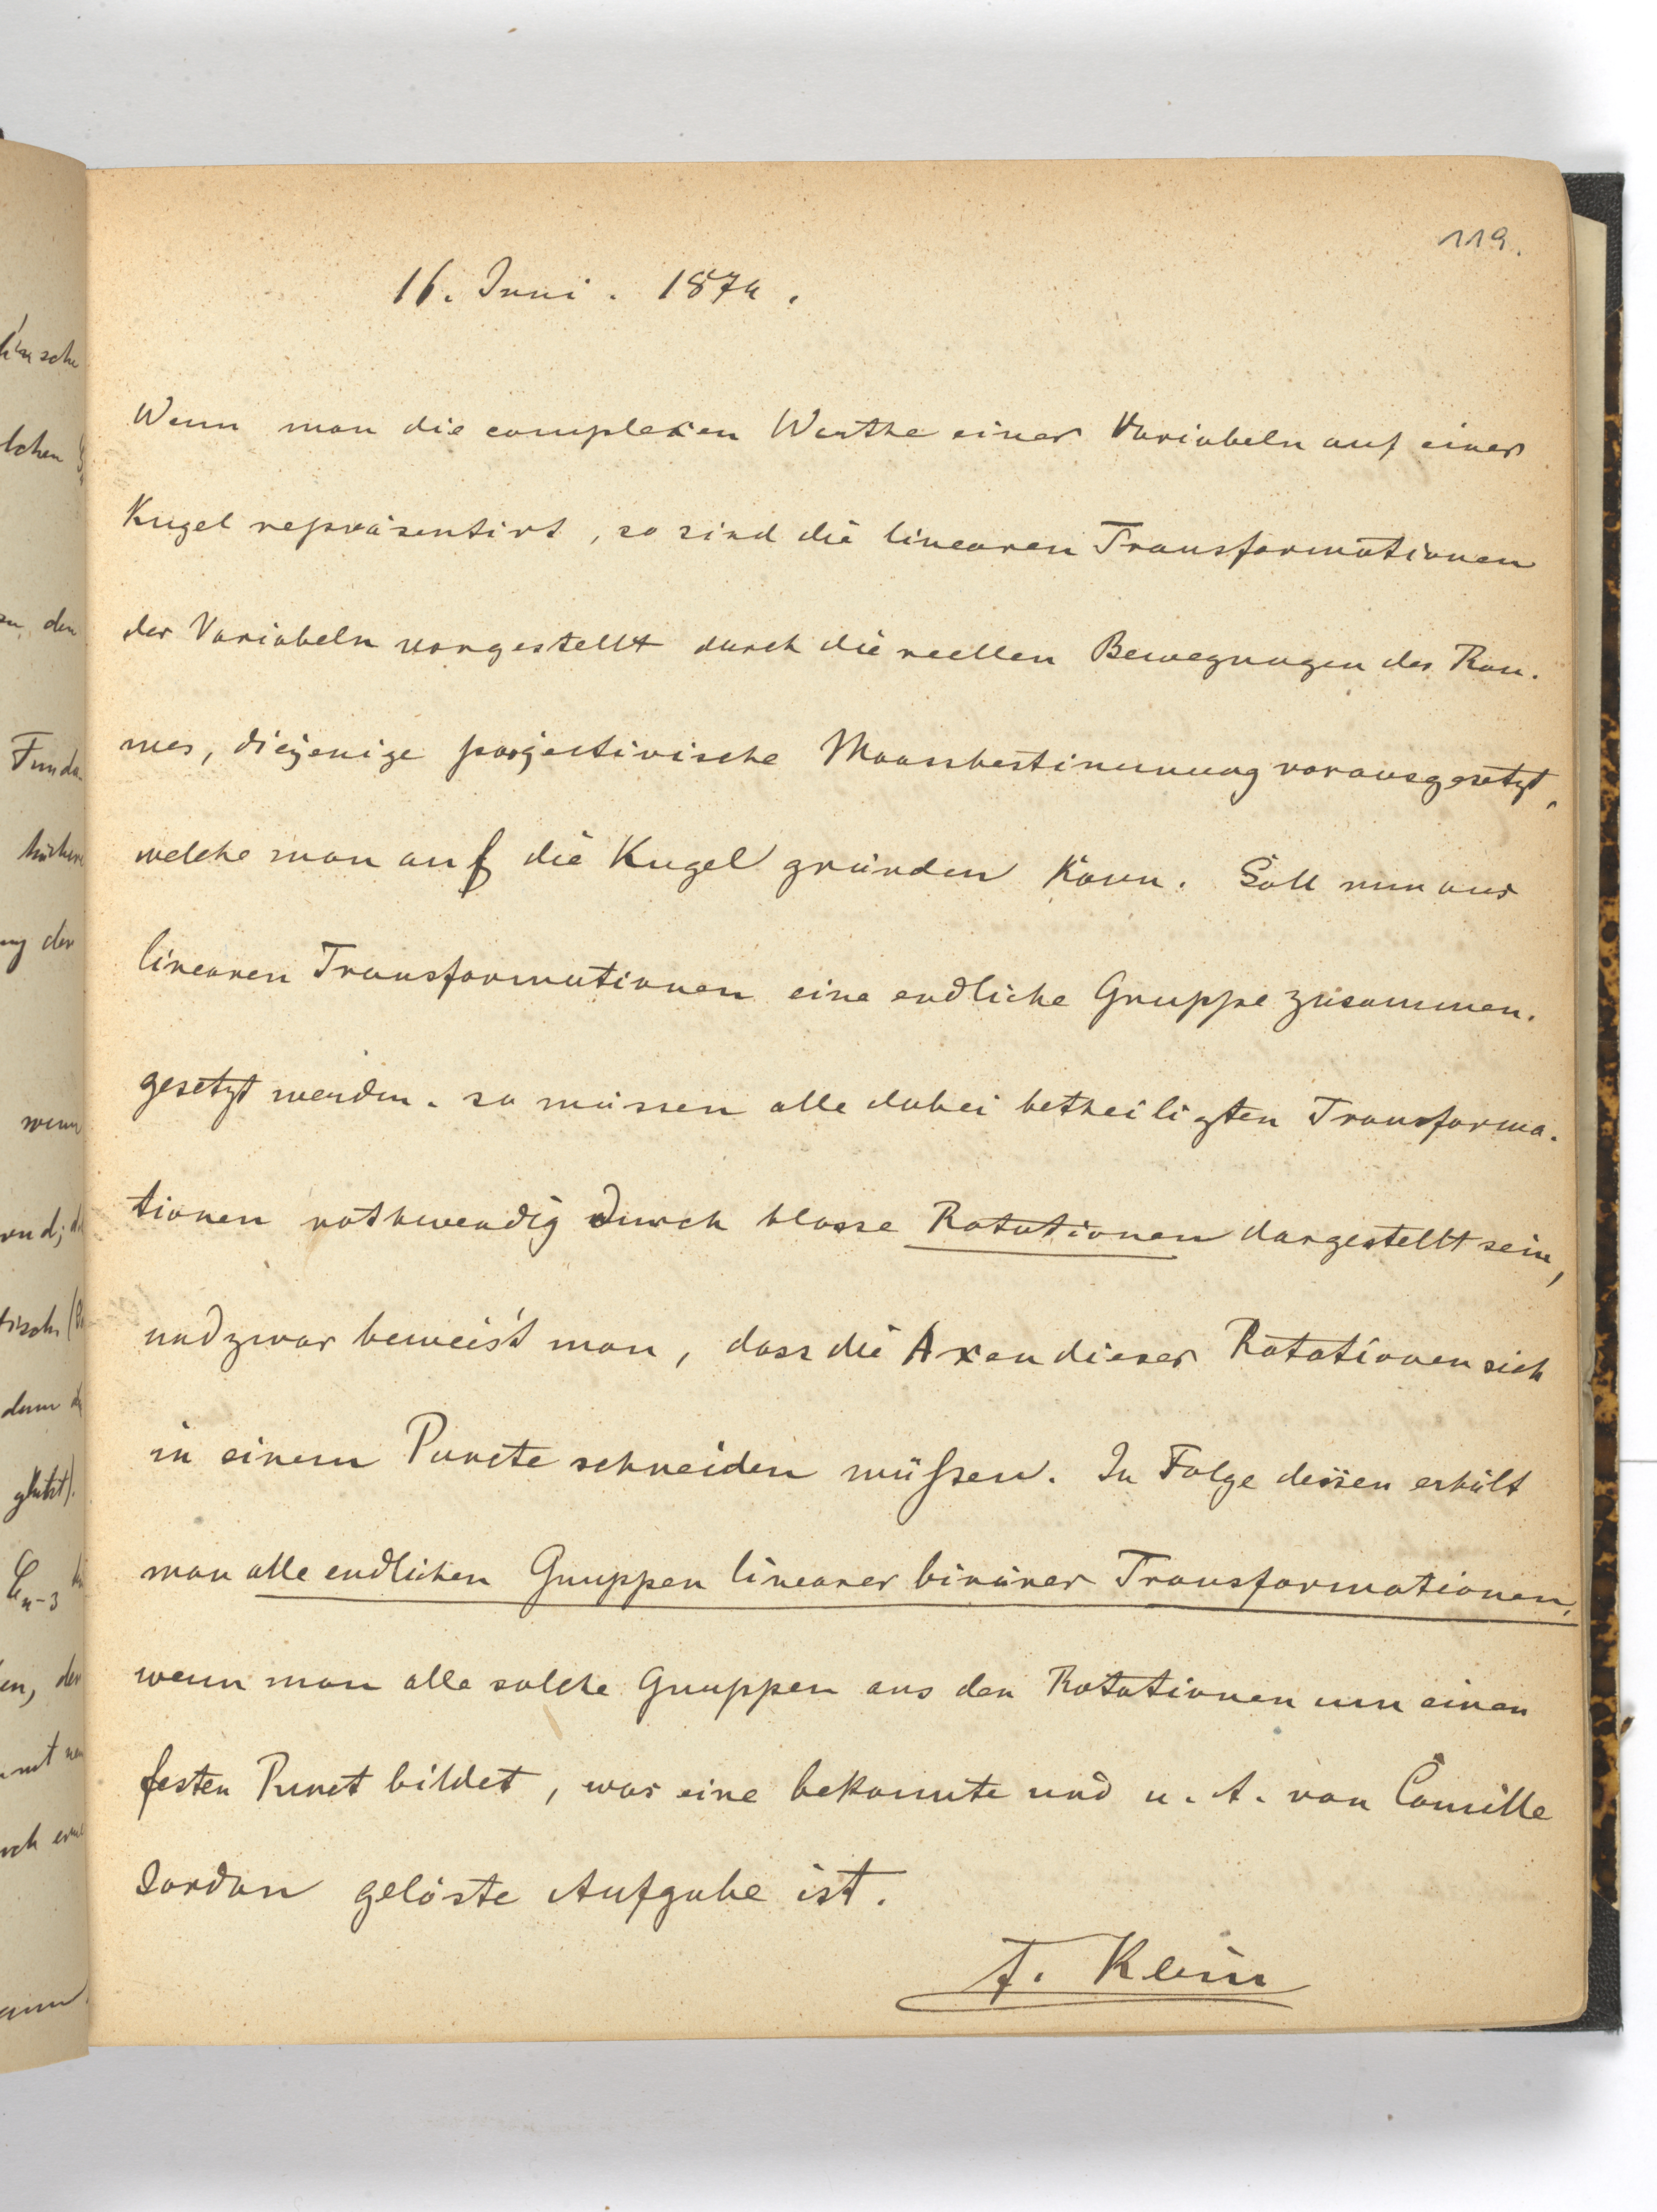 119.
16. Juni. 1874.
Wenn man die complexen Werthe einer Variabeln auf einer
Kugel repräsentirt, so sind die linearen Transformationen
der Variabeln vorgestellt durch die reellen Bewegungen des Rau-
mes, diejenige projectivische Maassbestimmung vorausgesetzt,
welche man auf die Kugel gründen kann. Soll nun aus
linearen Transformationen eine endliche Gruppe zusammen-
gesetzt werden, so müssen alle dabei betheiligten Transforma-
tionen nothwendig durch blosse Rotationen dargestellt sein,
und zwar beweis't man, dass die Axen dieser Rotationen sich
in einem Puncte schneiden müssen. In Folge dessen erhält
man alle endlichen Gruppen linearer binärer Transformationen,
wenn man alle solche Gruppen aus den Rotationen um einen
festen Punct bildet, was eine bekannte und u. A. von Camille
Jordan gelöste Aufgabe ist.
F. Klein